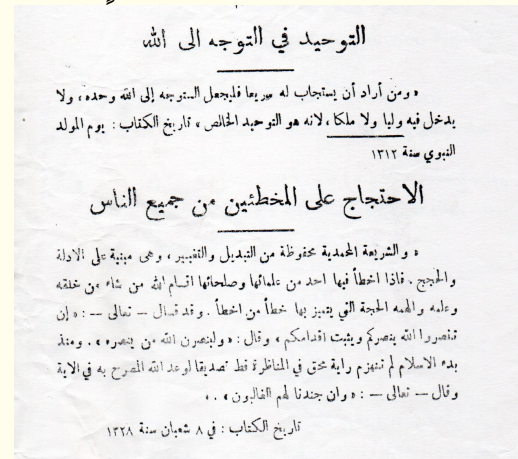 التوحيد في التوجه الى الله
« ومن أراد أن يستجاب له سريعا فليجعل التوجه إلى الله وحده، ولا
يدخل فيه وليا ولا ملكا، لانه هو التوحيد الخالص » تاريخ الكتاب : يوم المولد
النبوي سنة ١٣١٢
الاحتجاج على المخطئين من جميع الناس
« والشريعة المحمدية محفوظة من التبديل والتغيير، وهى مبنية على الادلة
والحجج . فاذا اخطأ فيها احد من علمائها وصلحائها اقام الله من شاء من خلقه
وعلمه والهمه الحجة التي يتميز بها خطأ من اخطأ . وقد قال — تعالى — : « إن
تنصروا الله ينصركم ويثبت اقدامكم » وقال : « ولينصرن الله من ينصره » . ومنذ
بدء الاسلام لم تنهزم راية محق في المناظرة قط تصديقا لوعد الله المصرح به في الاية
وقال — تعالى — : « وان جندنا لهم الغالبون » . »
تاريخ الكتاب : في ٨ شعبان سنة ١٣٢٨